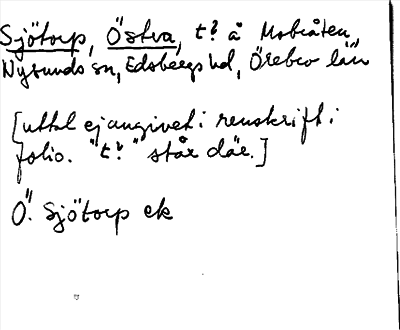 Sjötorp, Östra, t? å Mobråten,
Nysunds sn, Edsbergs hd, Örebro län
[uttal ej angivet i renskrift i
folio. "t?" står där.]
Ö. Sjötorp ek